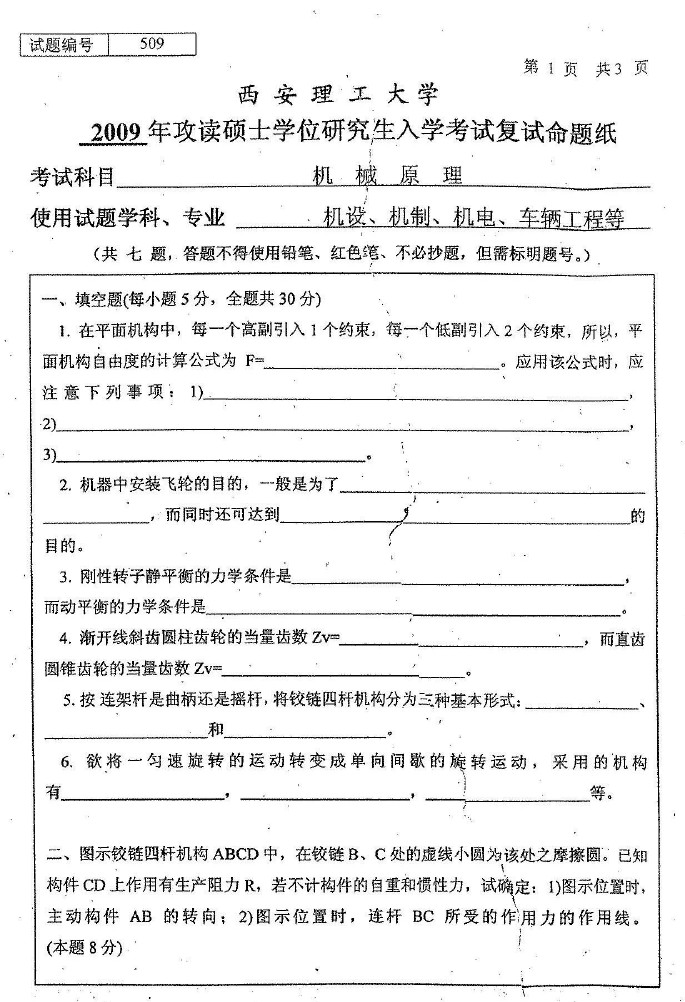 试题编号 509
第 1 页 共3 页
西 安 理 工 大 学
2009 年攻读硕士学位研究生入学考试复试命题纸
考试科目 机 械 原 理
使用试题学科、专业 机设、机制、机电、车辆工程等
(共 七 题, 答题不得使用铅笔、红色笔、不必抄题, 但需标明题号。)
一、填空题(每小题 5 分, 全题共 30 分)
1. 在平面机构中, 每一个高副引入 1 个约束, 每一个低副引入 2 个约束, 所以, 平
面机构自由度的计算公式为 F=______。应用该公式时, 应
注意下列事项: 1)______,
2)______,
3)______。
2. 机器中安装飞轮的目的, 一般是为了______
______, 而同时还可达到______的
目的。
3. 刚性转子静平衡的力学条件是______,
而动平衡的力学条件是______。
4. 渐开线斜齿圆柱齿轮的当量齿数 Zv=______, 而直齿
圆锥齿轮的当量齿数 Zv=______。
5. 按 连架杆是曲柄还是摇杆, 将铰链四杆机构分为三种基本形式: ______、
______和______。
6. 欲将一匀速旋转的运动转变成单向间歇的旋转运动, 采用的机构
有______, ______, ______等。
二、图示铰链四杆机构 ABCD 中, 在铰链 B、C 处的虚线小圆为该处之摩擦圆。已知
构件 CD 上作用有生产阻力 R, 若不计构件的自重和惯性力, 试确定: 1)图示位置时,
主动构件 AB 的转向; 2)图示位置时, 连杆 BC 所受的作用力的作用线。
(本题 8 分)